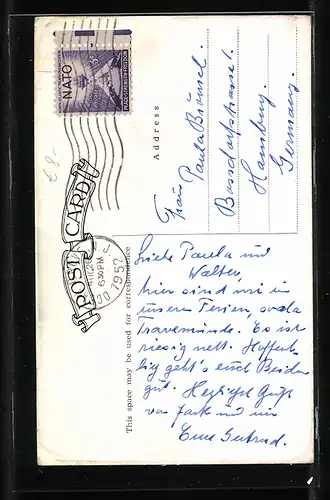 NATO
£8-
POST CARD
6 30 PM
1952
This space may be used for correspondence
Address
Frau Paula Brümsel.
Hamburg.
Germany.
Liebe Paula und
Walter,
hier sind wir in
unseren Ferien, so à la
Travemünde. Es ist
riesig nett. Hoffent-
lich geht's euch Beiden
gut. Herzlichst Grüße
von Jack und mir
Eure Gertrud.